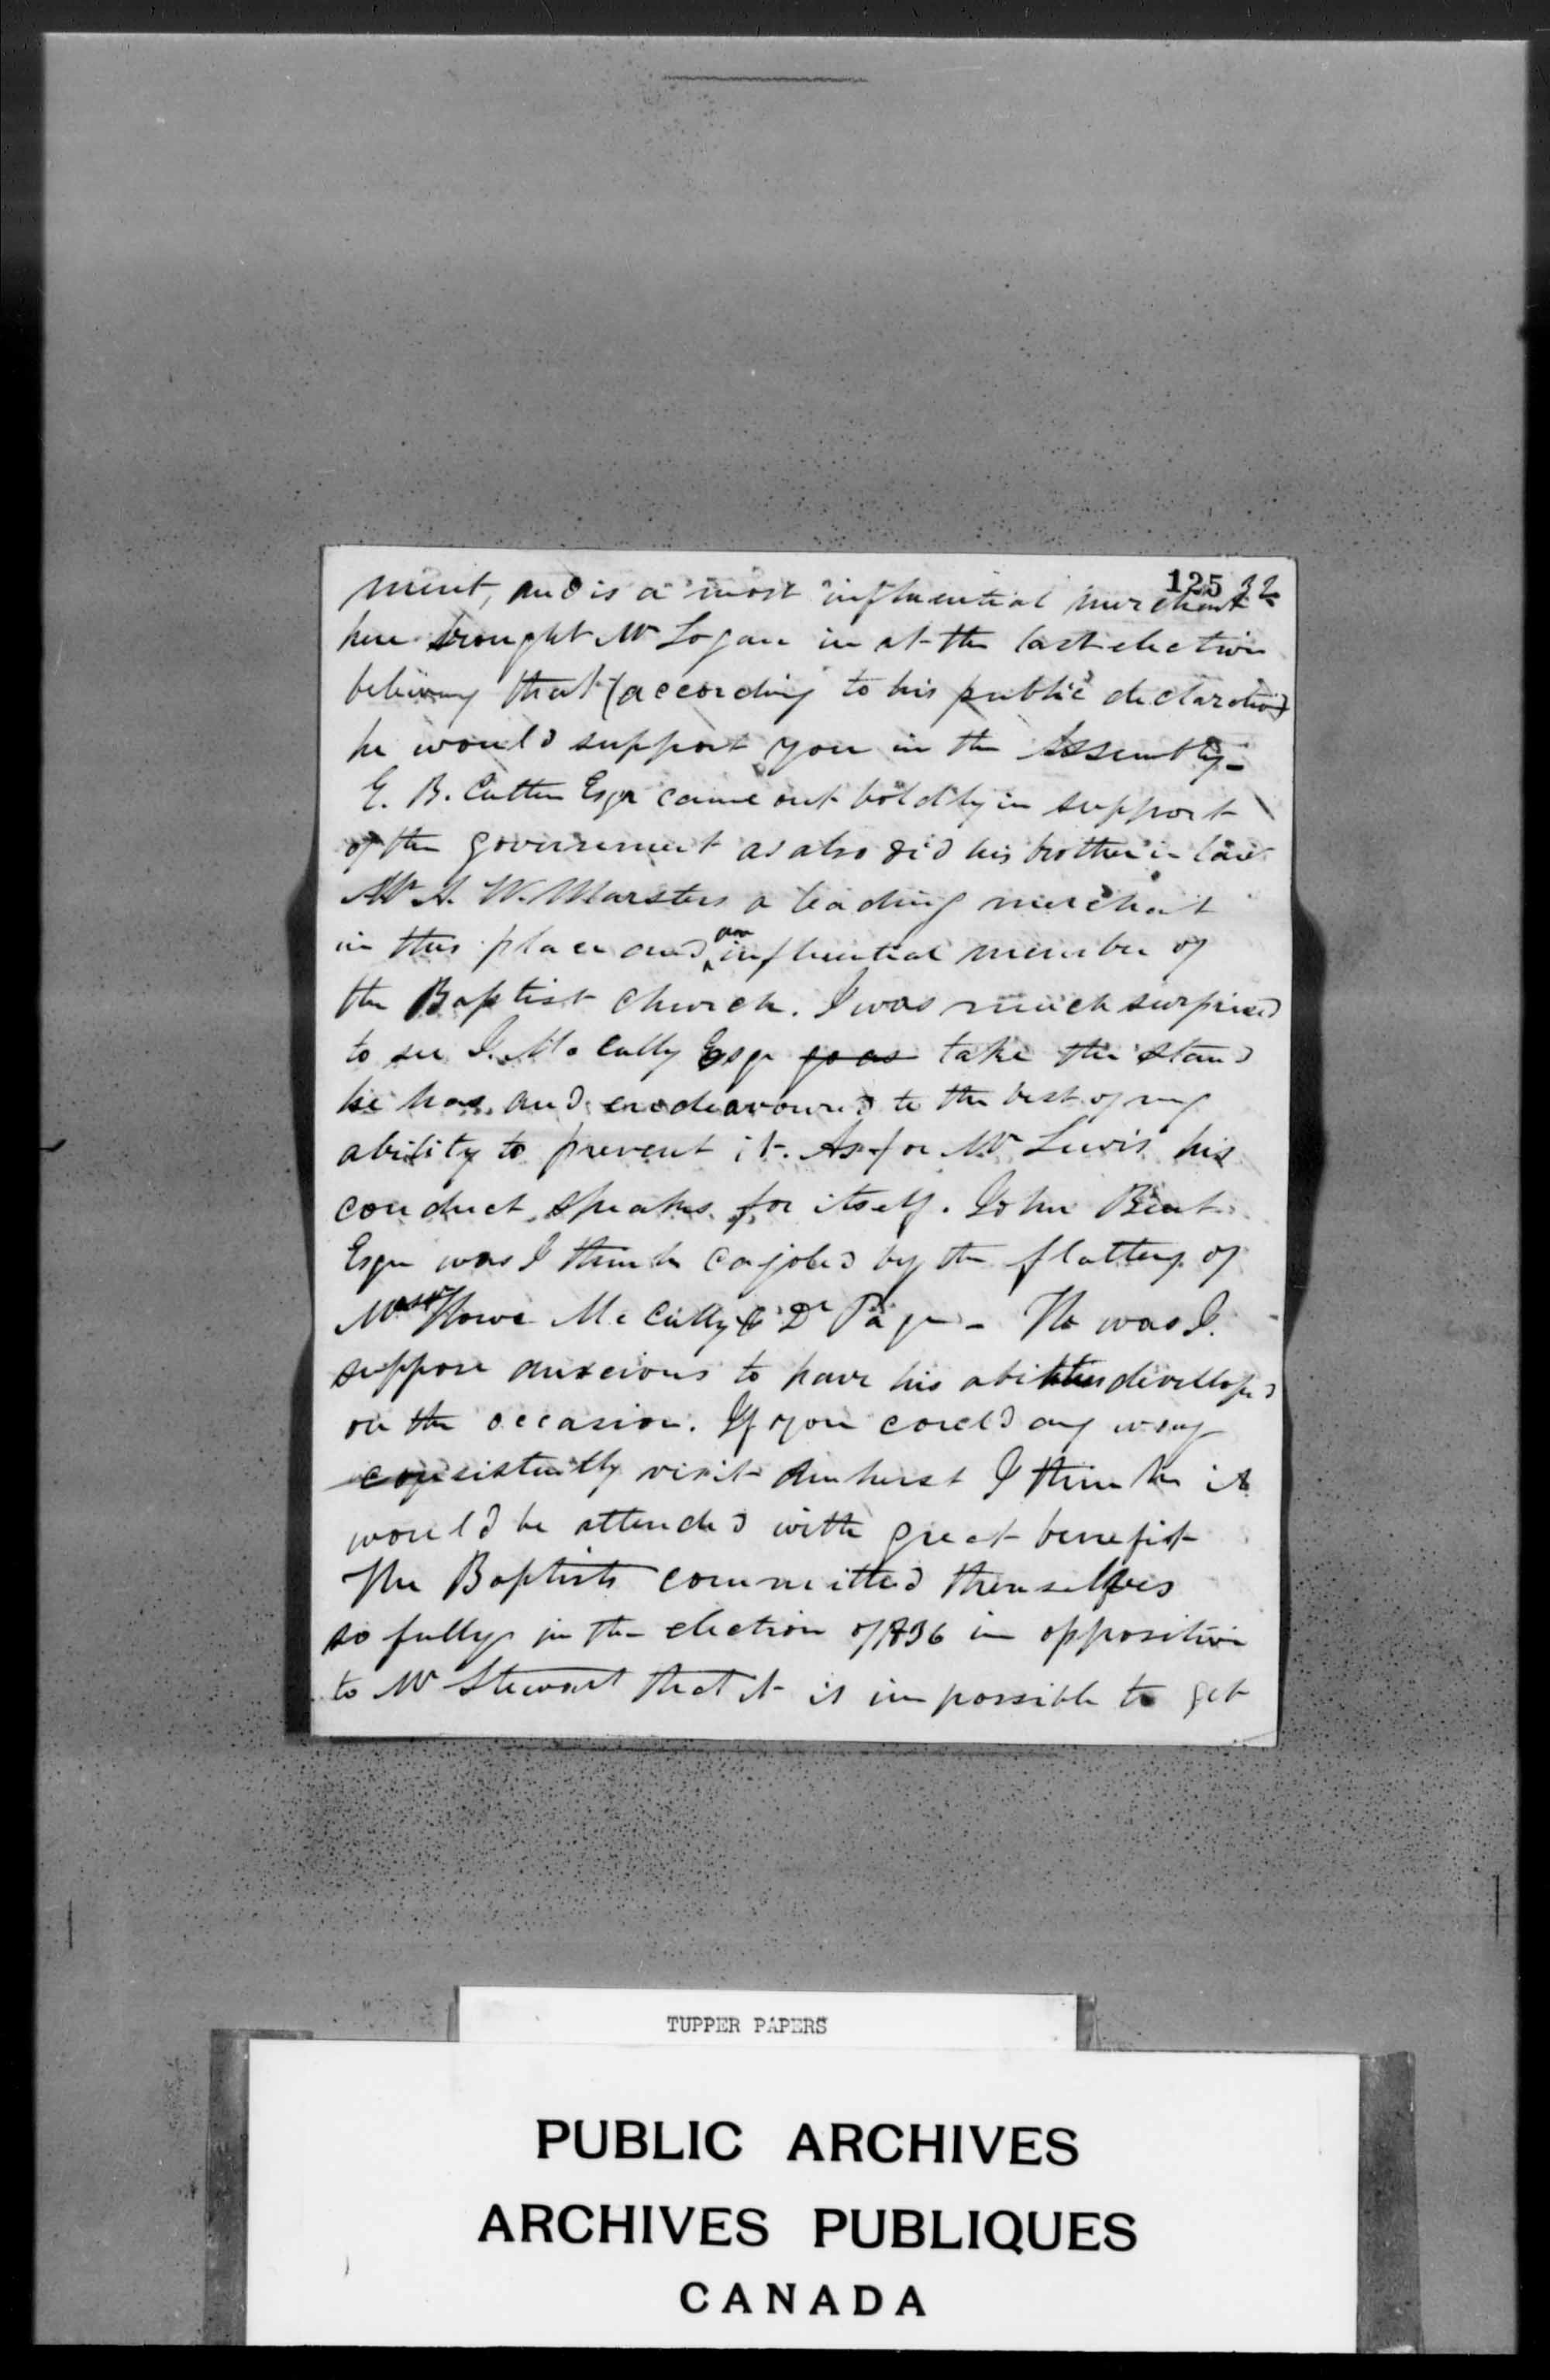 125 32
ment, and is a most influential merchant
here brought Mr Logan in at the last election
believing that (according to his public declaration)
he would support you in the Assembly -
E. B. Cutten Esqr came out boldly in support
of the government as also did his brother in law
Mr A. W. Marsters a leading merchant
in this place and an influential member of
the Baptist Church. I was much surprised
to see J. McCully Esqr go as take the stand
he has, and endeavoured to the best of my
ability to prevent it. As for Mr Lewis his
conduct speaks for itself. John Bent
Esqr was I think cajoled by the flattery of
Messrs Howe McCully & Dr Page - He was I
suppose anxcious to have his abilities develloped
on the occasion. If you could any way
consistently visit Amherst I think it
would be attended with great benefit
The Baptists committed themselves
so fully in the election of 1836 in opposition
to Mr Stewart that it is impossible to get
TUPPER PAPERS
PUBLIC ARCHIVES
ARCHIVES PUBLIQUES
CANADA